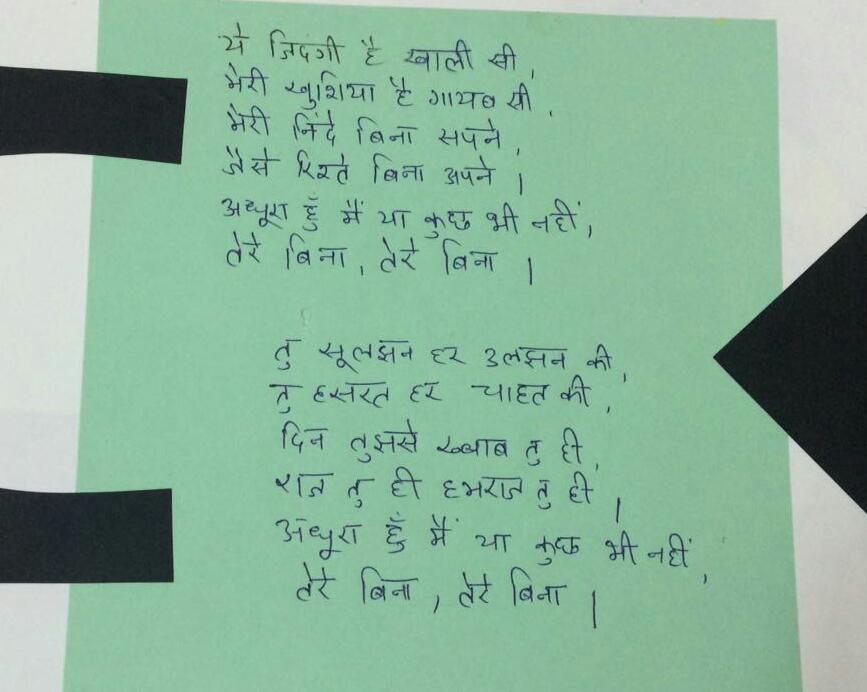 ये जिदंगी है खाली सी,
मेरी खुशिया है गायब सी,
मेरी निंदे बिना सपने,
जैसे रिश्ते बिना अपने।
अधूरा हुँ मैं या कुछ भी नहीं,
तेरे बिना, तेरे बिना।
तु सूलझन हर उलझन की,
तु हसरत हर चाहत की,
दिन तुझसे ख्वाब तु ही,
राज तु ही हमराज तु ही।
अंधूरा हुँ मैं या कुछ भी नहीं,
तेरे बिना, तेरे बिना।